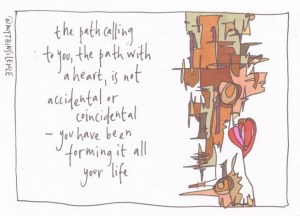 the path calling
to you, the path with
a heart, is not
accidental or
coincidental
– you have been
forming it all
your life